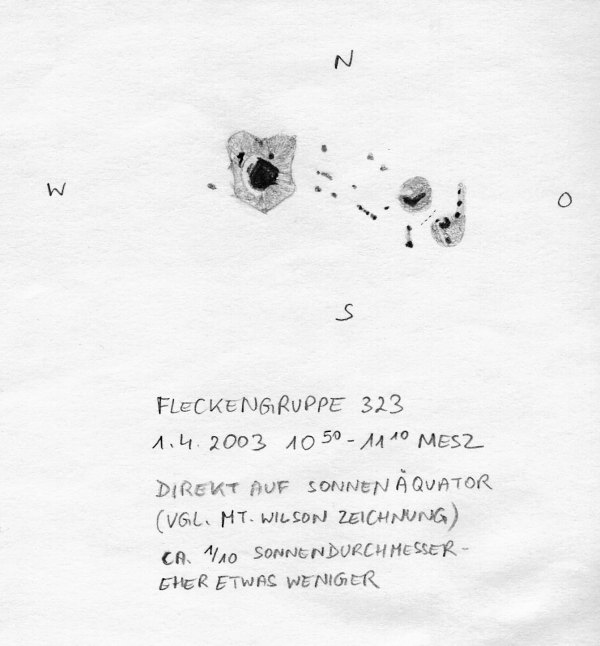 N
W
O
S
FLECKENGRUPPE 323
1.4.2003 10⁵⁰-11¹⁰ MESZ
DIREKT AUF SONNENÄQUATOR
(VGL. MT. WILSON ZEICHNUNG)
CA. 1/10 SONNENDURCHMESSER-
EHER ETWAS WENIGER